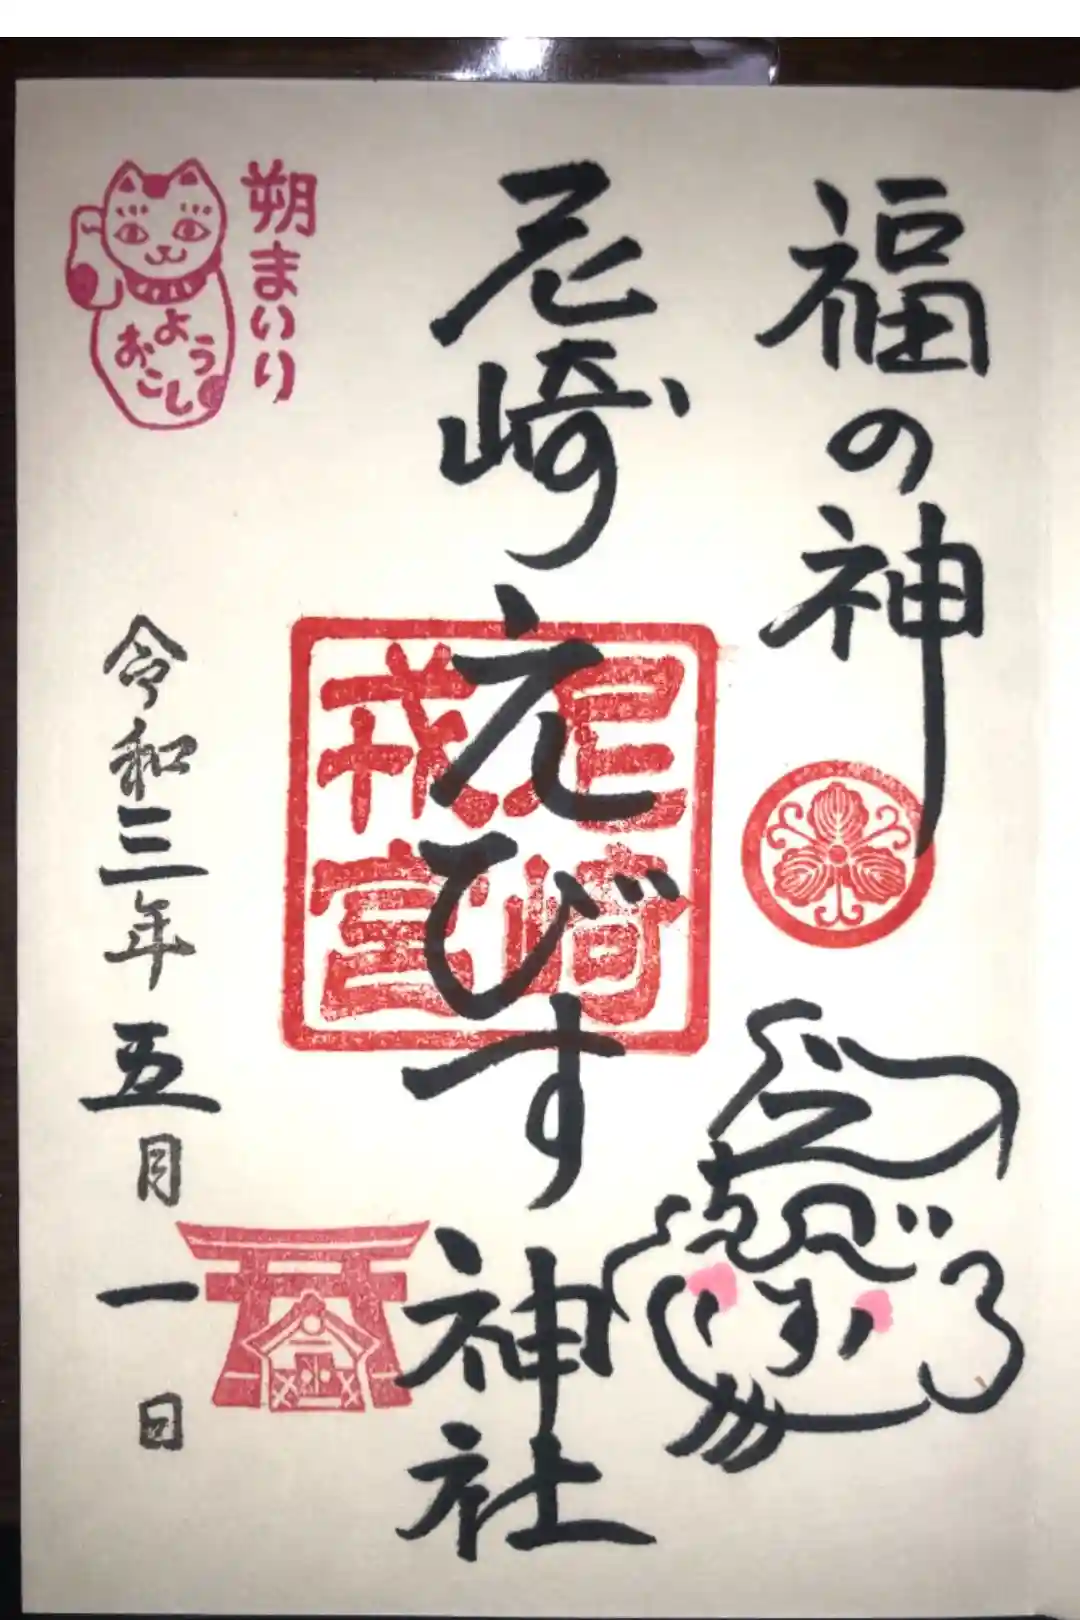 福の神
尼崎えびす神社
尼崎
戎宮
朔まいり
おこし
よう
令和三年五月一日